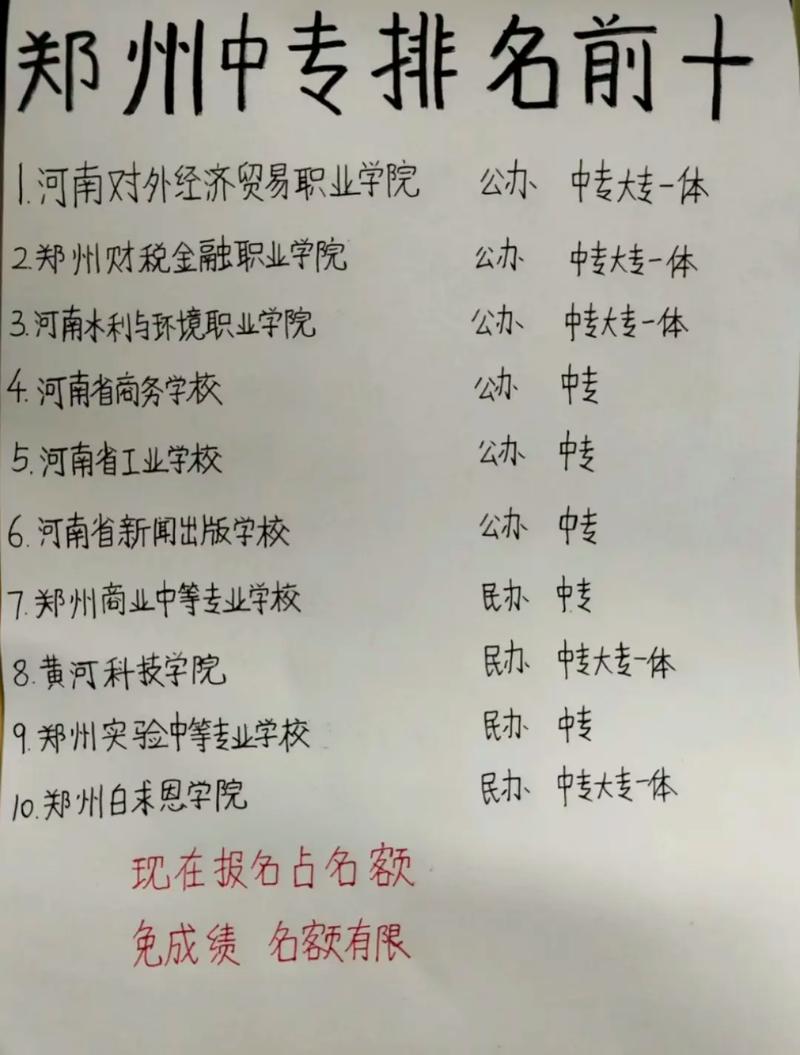 郑州中专排名前十
1.河南对外经济贸易职业学院 公办 中专大专一体
2.郑州财税金融职业学院 公办 中专大专一体
3.河南水利与环境职业学院 公办 中专大专一体
4.河南省商务学校 公办 中专
5.河南省工业学校 公办 中专
6.河南省新闻出版学校 公办 中专
7.郑州商业中等专业学校 民办 中专
8.黄河科技学院 民办 中专大专一体
9.郑州实验中等专业学校 民办 中专
10.郑州白求恩学院 民办 中专大专一体
现在报名占名额
免成绩 名额有限